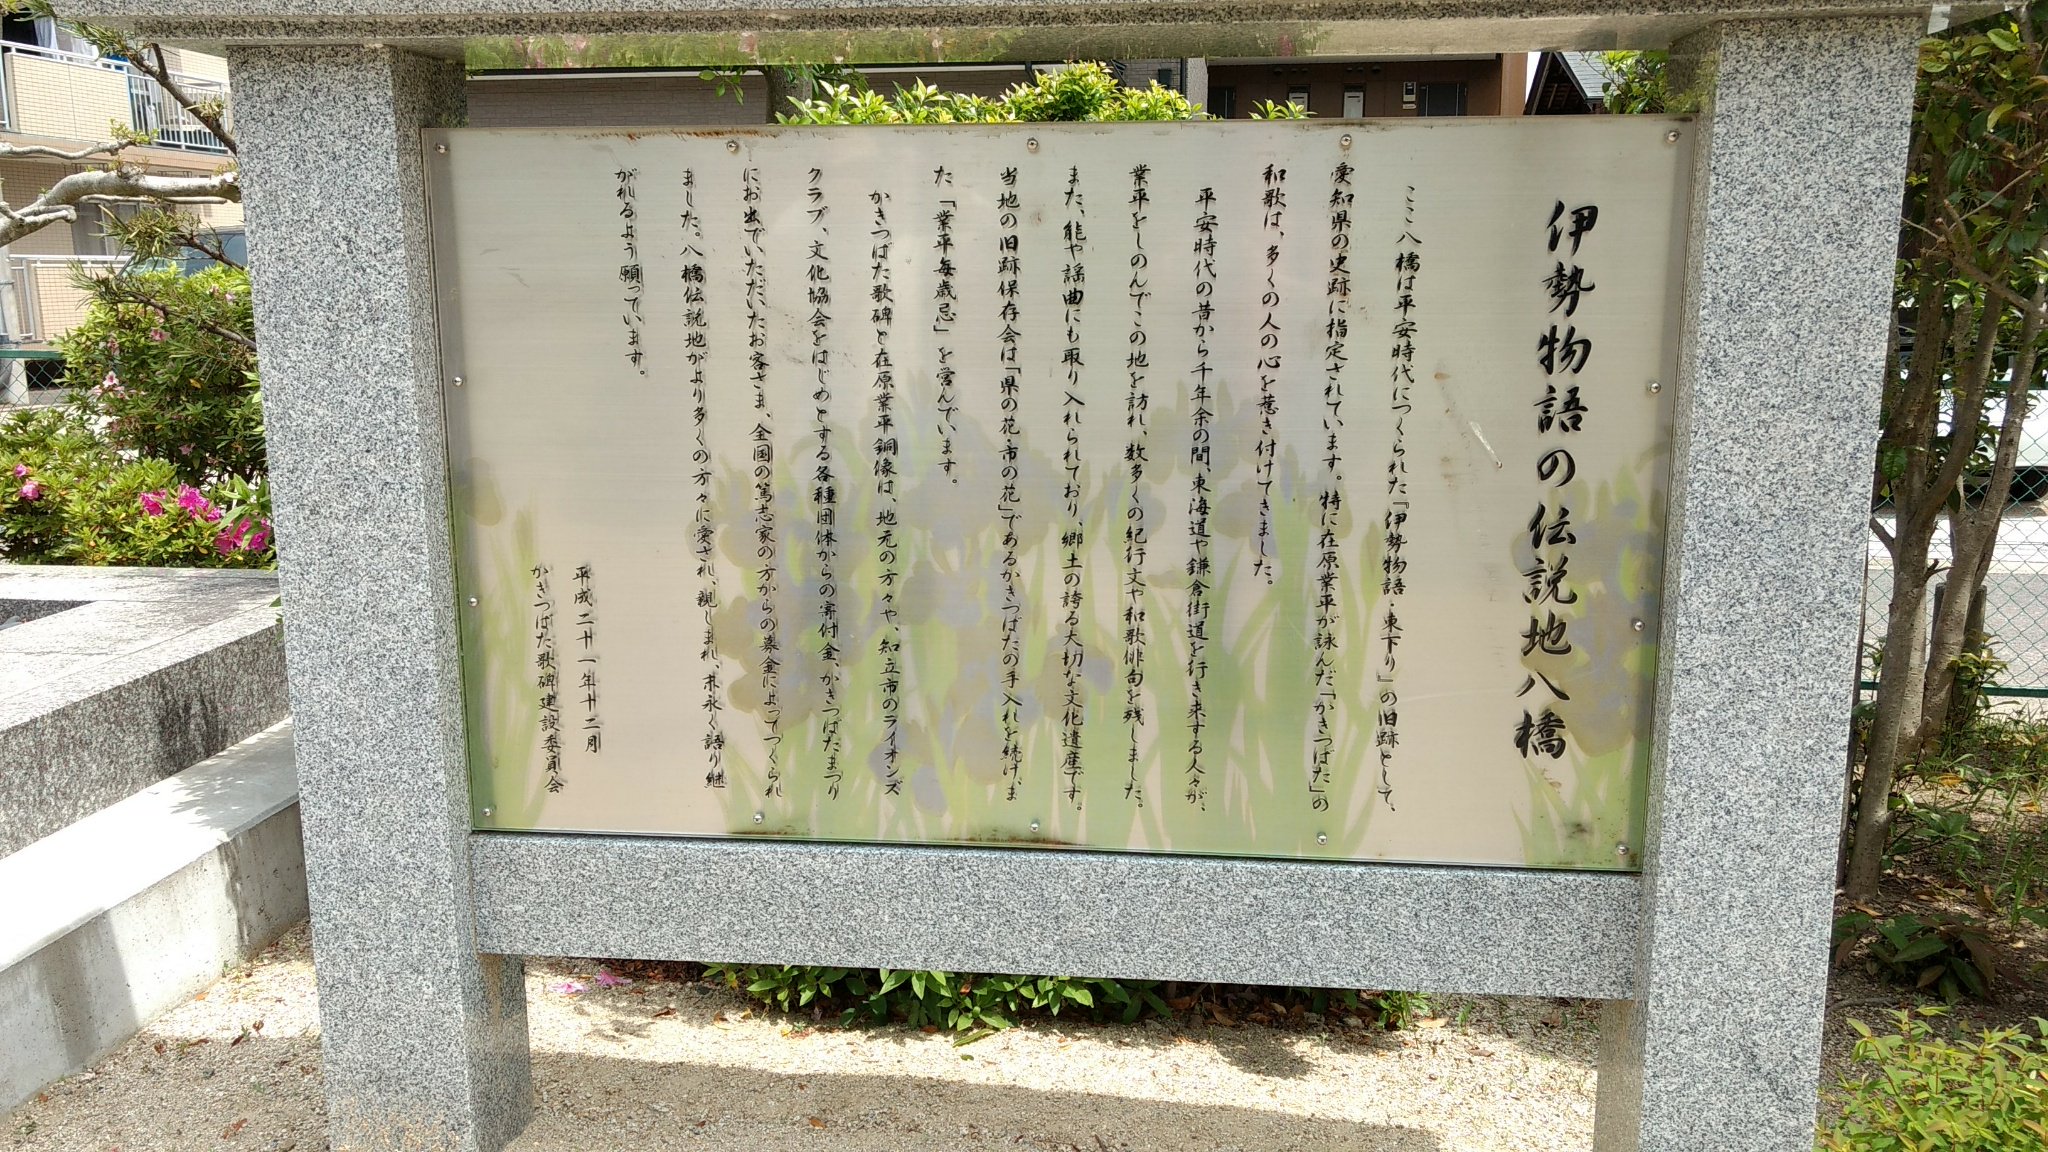 伊勢物語の伝説地八橋
ここ八橋は平安時代につくられた『伊勢物語・東下り』の旧跡として、
愛知県の史跡に指定されています。特に在原業平が詠んだ「かきつばた」の
和歌は、多くの人の心を惹き付けてきました。
平安時代の昔から千年余の間、東海道や鎌倉街道を行き来する人々が、
業平をしのんでこの地を訪れ、数多くの紀行文や和歌俳句を残しました。
また、能や謡曲にも取り入れられており、郷土の誇る大切な文化遺産です。
当地の旧跡保存会は「県の花・市の花」であるかきつばたの手入れを続け、ま
た「業平毎歳忌」を営んでいます。
かきつばた歌碑と在原業平銅像は、地元の方々や、知立市のライオンズ
クラブ、文化協会をはじめとする各種団体からの寄付金、かきつばたまつり
にお出でいただいたお客さま、全国の篤志家の方からの募金によってつくられ
ました。八橋伝説地がより多くの方々に愛され、親しまれ、末永く語り継
がれるよう願っています。
平成二十一年十二月
かきつばた歌碑建設委員会